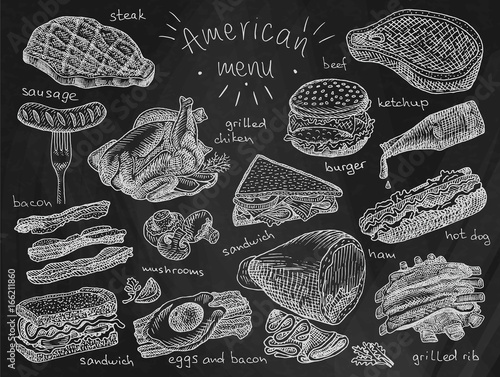 steak
American
menu
beef
sausage
ketchup
grilled
chiken
burger
bacon
sandwich
ham
hot dog
mushrooms
sandwich
eggs and bacon
grilled rib
Adobe Stock | #166211860